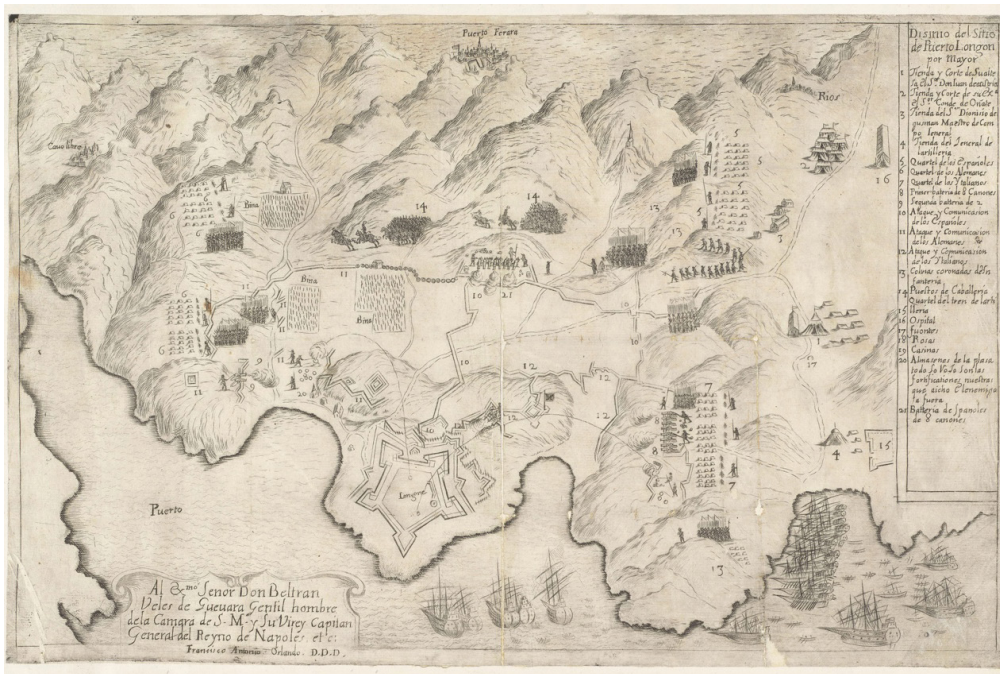 Puerto Ferara
Rios
Cauoliuro
Viña
Viña
Viña
Puerto
Longon
Disinio del Sitio
de Puerto Longon
por mayor
1 Tienda y Corte de Su alte
2 Tienda y Corte de su Exª
el Sr Conde de Oñate
3 Tienda del Sr Dionisio de
gusman Maestro de Cam
po General
4 Tienda del General de
lartilleria
5 Quartel de los Españoles
6 Quartel de los Alemanes
7 Quartel de los Ytalianos
8 Primer bateria de 8 Canones
9 Segunda batteria de 2.
10 Ataque y Comunicacion
de los Españoles
11 Ataque y Comunicacion
de los Alemanes
12 Ataque y Comunicacion
de los Ytalianos
13 Colinas coronadas de in
fanteria
14 Puestos de Caballeria
15 Quartel del tren de larti
lleria
16 Ospital
17 fuentes
18
19
20 Almazenes de la plasa
fortificationes nuestras
que dicho Elenemigo
fuera
21 Batteria de Spanoles
de 8 canones
Al Exmo Senor Don Beltran
Veles de Gueuara Gentil hombre
dela Camara de S. M. y Su Virey Capitan
General del Reyno de Napoles etc:
Francisco Antonio Orlando. D.D.D.